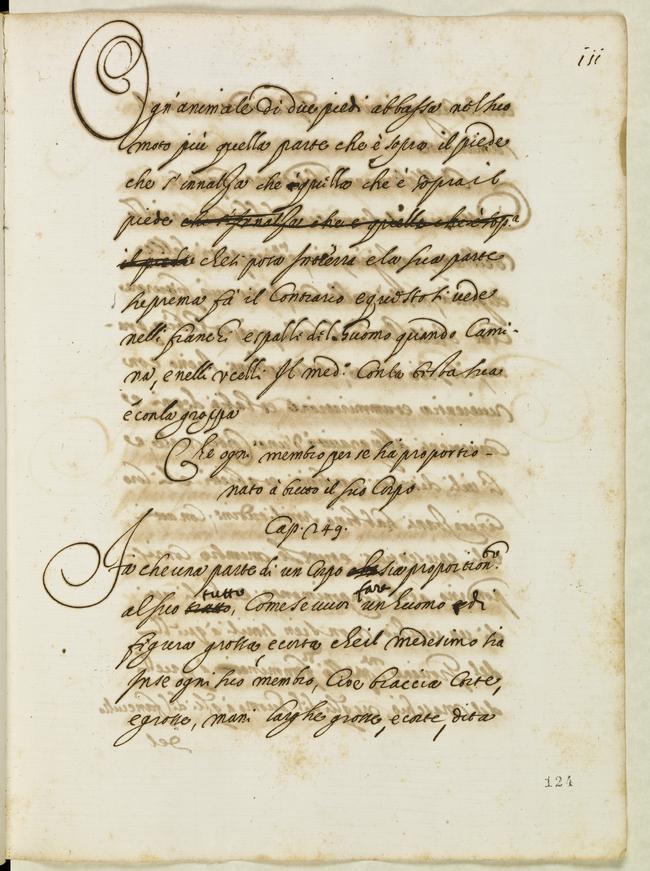 iii
Ogn'animale di due piedi abbassa nel suo
moto più quella parte che è sopra il piede
che s'innalsa che quella che è sopra il
piede che s'innalsa che e quella che è sop.ª
il piede che si posa In terra e la sua parte
suprema fà il Contrario e questo si uede
nelli fianchi e spalli del huomo quando Cami-
na, e nelli vcelli Il med.º Con la testa sua
e con la groppa
Che ogni membro per se ha proportio-
nato à tutto il suo Corpo
Cap. 249.
Fa che una parte di un Corpo sia proportion.to
al suo tutto, Come se uuoi fare un huomo di
figura grossa e corta che il medesimo sia
In se ogni suo membro, Cioe braccia Corte,
e grosse, mani larghe grosse, e corte, dita
124